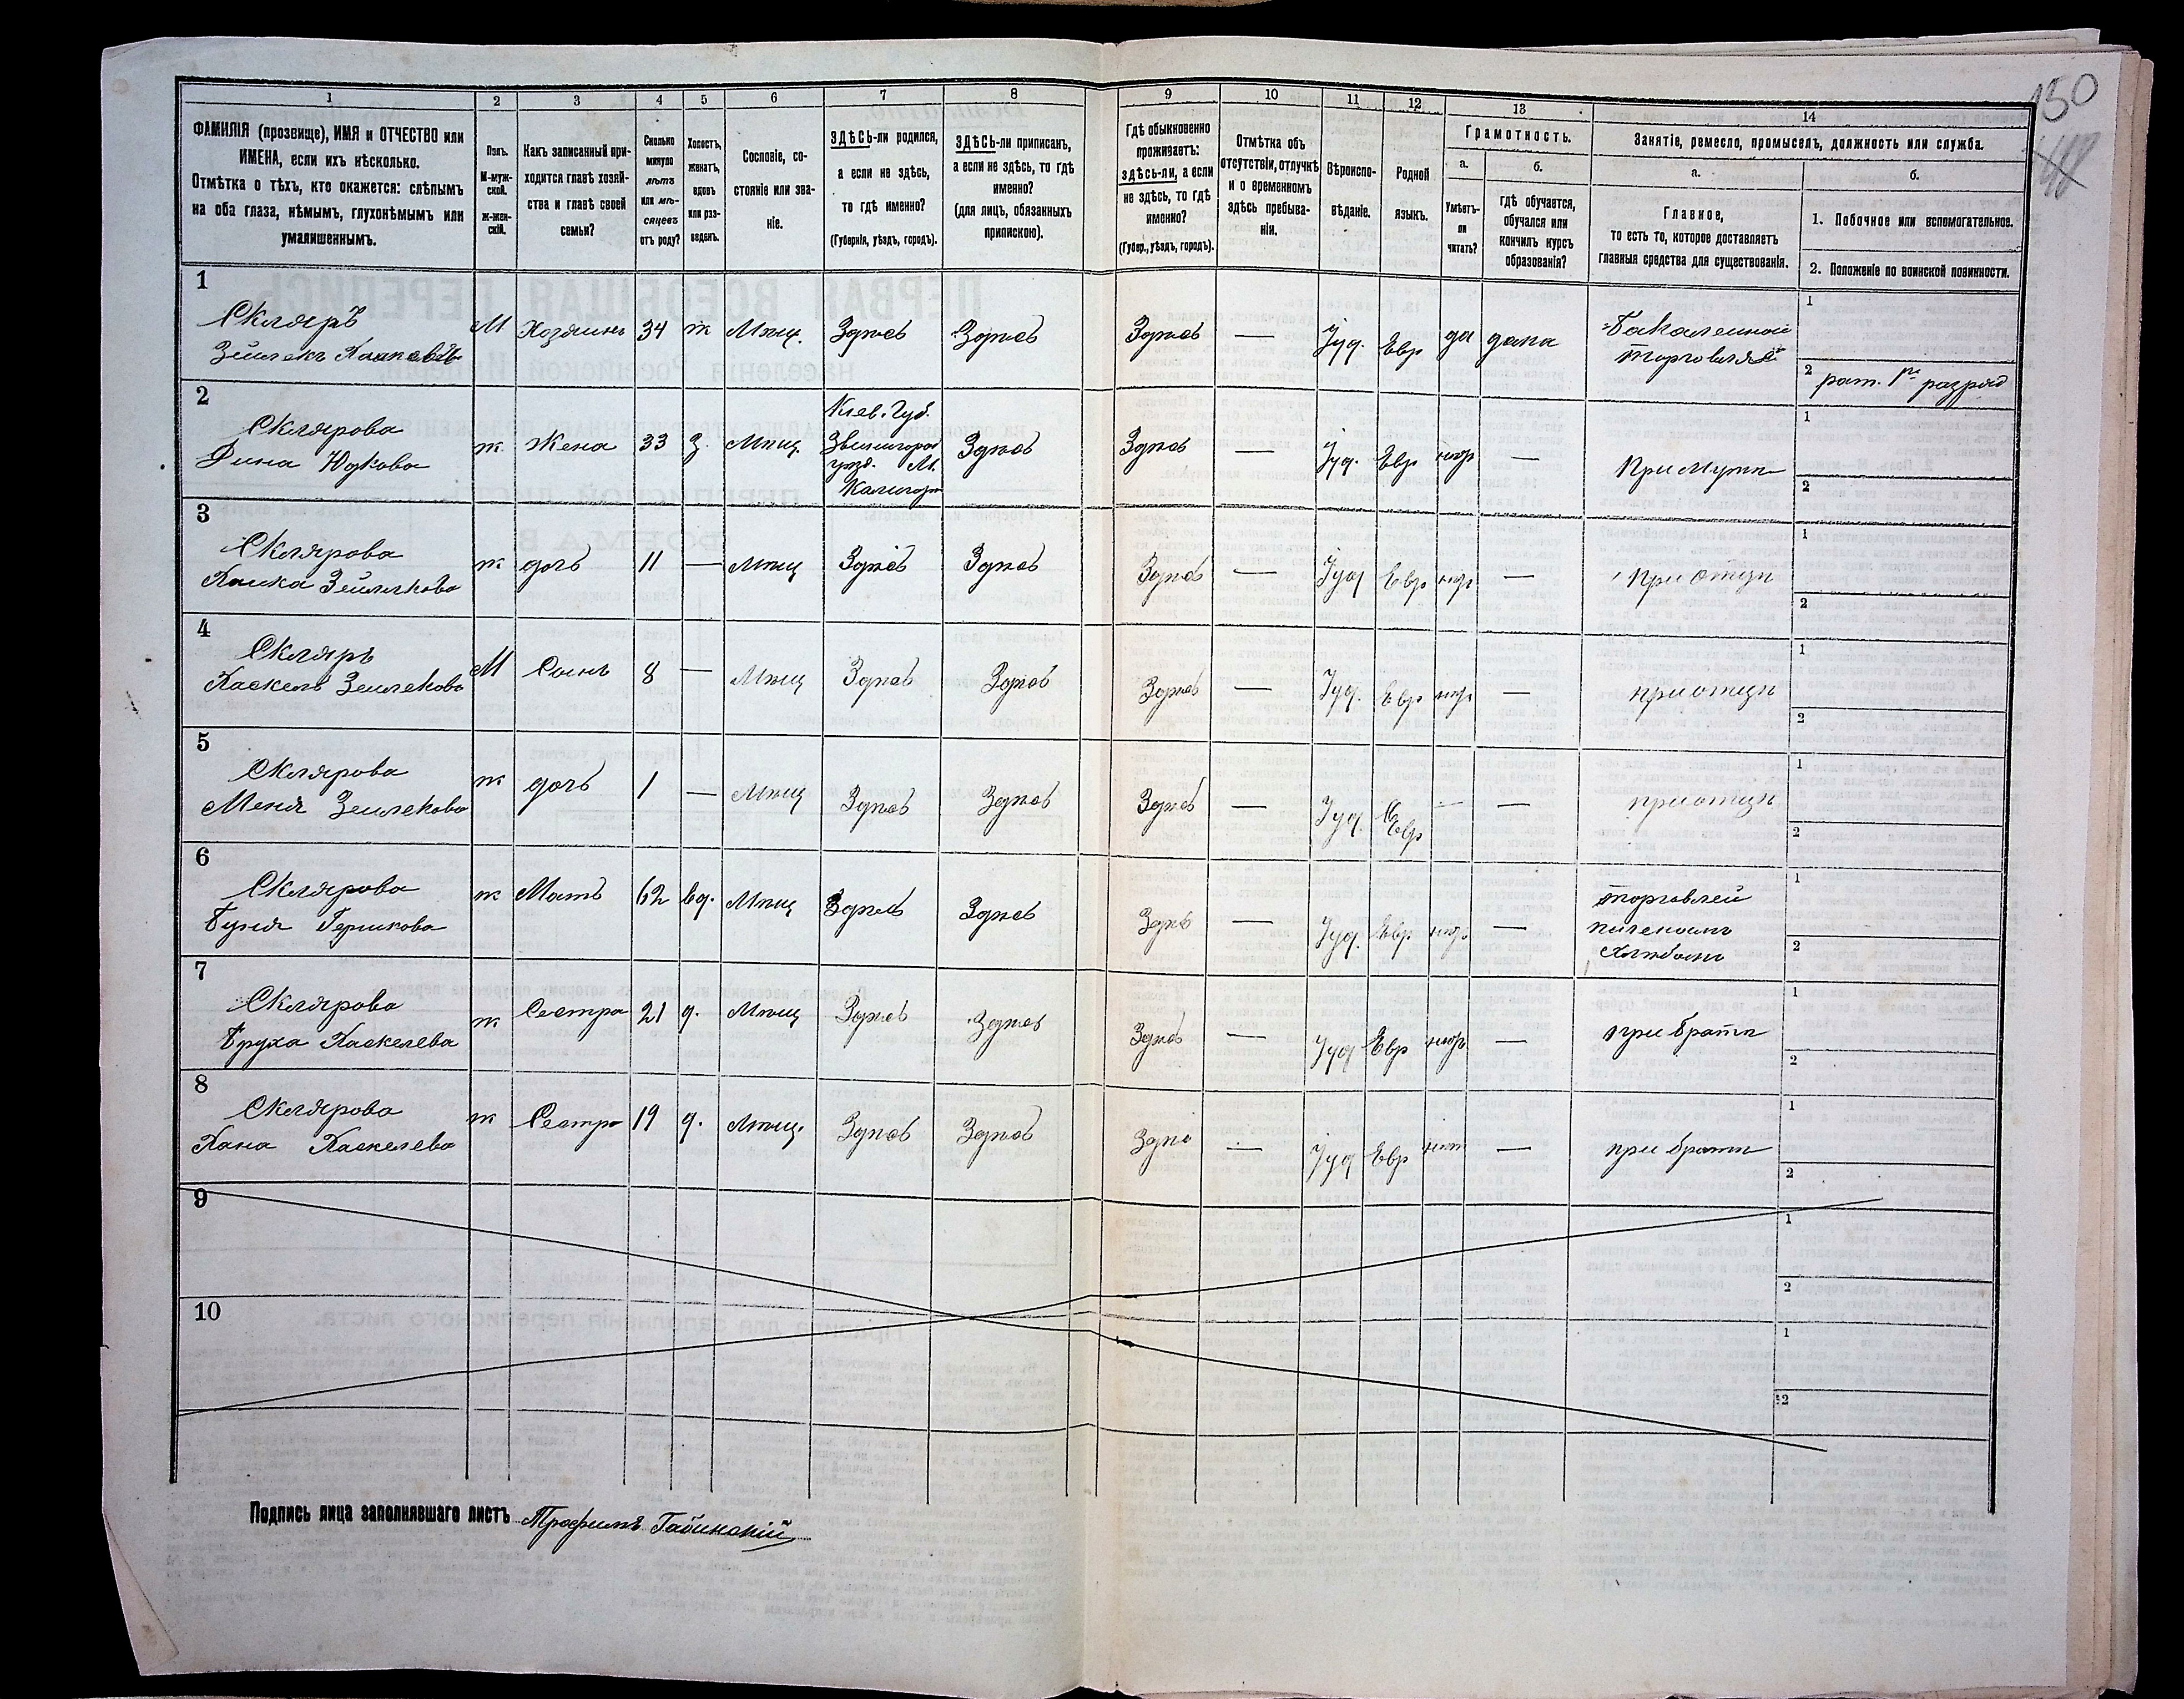 150
48
1
2
3
4
5
6
7
8
9
10
11
12
13
14
ФАМИЛІЯ (прозвище), ИМЯ и ОТЧЕСТВО или
ИМЕНА, если ихъ нѣсколько.
Отмѣтка о тѣхъ, кто окажется: слѣпымъ
на оба глаза, нѣмымъ, глухонѣмымъ или
умалишеннымъ.
Полъ.
М-муж-
ской.
ж-жен-
скій.
Какъ записанный при-
ходится главѣ хозяй-
ства и главѣ своей
семьи?
Сколько
минуло
лѣтъ
или мѣ-
сяцевъ
отъ роду?
Холостъ,
женатъ,
вдовъ
или раз-
веденъ.
Сословіе, со-
стояніе или зва-
ніе.
ЗДѢСЬ-ли родился,
а если не здѣсь,
то гдѣ именно?
(Губернія, уѣздъ, городъ).
ЗДѢСЬ-ли приписанъ,
а если не здѣсь, то гдѣ
именно?
(для лицъ, обязанныхъ
припискою).
Гдѣ обыкновенно
проживаетъ:
здѣсь-ли, а если
не здѣсь, то гдѣ
именно?
(Губер., уѣздъ, городъ).
Отмѣтка объ
отсутствіи, отлучкѣ
и о временномъ
здѣсь пребыва-
ніи.
Вѣроиспо-
вѣданіе.
Родной
языкъ.
Грамотность.
а.
б.
Умѣетъ-
ли
читать?
гдѣ обучается,
обучался или
кончилъ курсъ
образованія?
Занятіе, ремесло, промыселъ, должность или служба.
а.
б.
Главное,
то есть то, которое доставляетъ
главныя средства для существованія.
1. Побочное или вспомогательное.
2. Положеніе по воинской повинности.
1
Скляръ
М Хозяинъ 34 ж Мѣщ. Здѣсь Здѣсь Здѣсь — Іуд. Евр да дома
Бакалейной
торговля
1
2 рат. 1го разряд
2
Склярова
Дина Юдкова
ж Жена 33 З. Мѣщ.
Кіев. Губ.
Звенигород
уѣз. М.
Здѣсь Здѣсь — Іуд. Евр нѣт — При Мужѣ
1
2
3
Склярова
ж дочь 11 — Мѣщ Здѣсь Здѣсь Здѣсь — Іуд Евр нѣт — При отцѣ
1
2
4
Скляръ
М Сынъ 8 — Мѣщ Здѣсь Здѣсь Здѣсь — Іуд. Евр нѣт — при отцѣ
1
2
5
Склярова
Меня Зейлекова
ж дочь 1 — Мѣщ Здѣсь Здѣсь Здѣсь — Іуд. Евр — — при отцѣ
1
2
6
Склярова
Буня Гершкова
ж Мать 62 вд. Мѣщ Здѣсь Здѣсь Здѣсь — Іуд. Евр. нѣт —
торговлей
печенымъ
хлѣбомъ
1
2
7
Склярова
Бруха Хаскелева
ж Сестра 21 д. Мѣщ Здѣсь Здѣсь Здѣсь — Іуд Евр нѣт — при братѣ
1
2
8
Склярова
Хана Хаскелева
ж Сестра 19 д. Мѣщ. Здѣсь Здѣсь Здѣсь — Іуд Евр нѣт — при братѣ
1
2
9
1
2
10
1
2
Подпись лица заполнявшаго листъ Трофимъ Габинскій